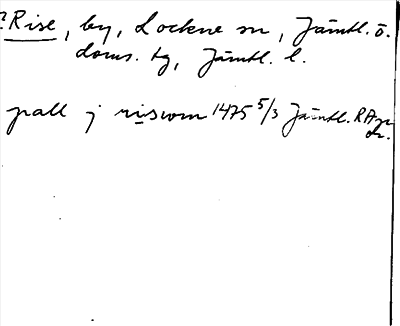 ?Rise, by, Lockne sn, Jämtl. ö.
doms. tg, Jämtl. l.
pall j riswm 1475 5/3 Jämtl. RAp
or.